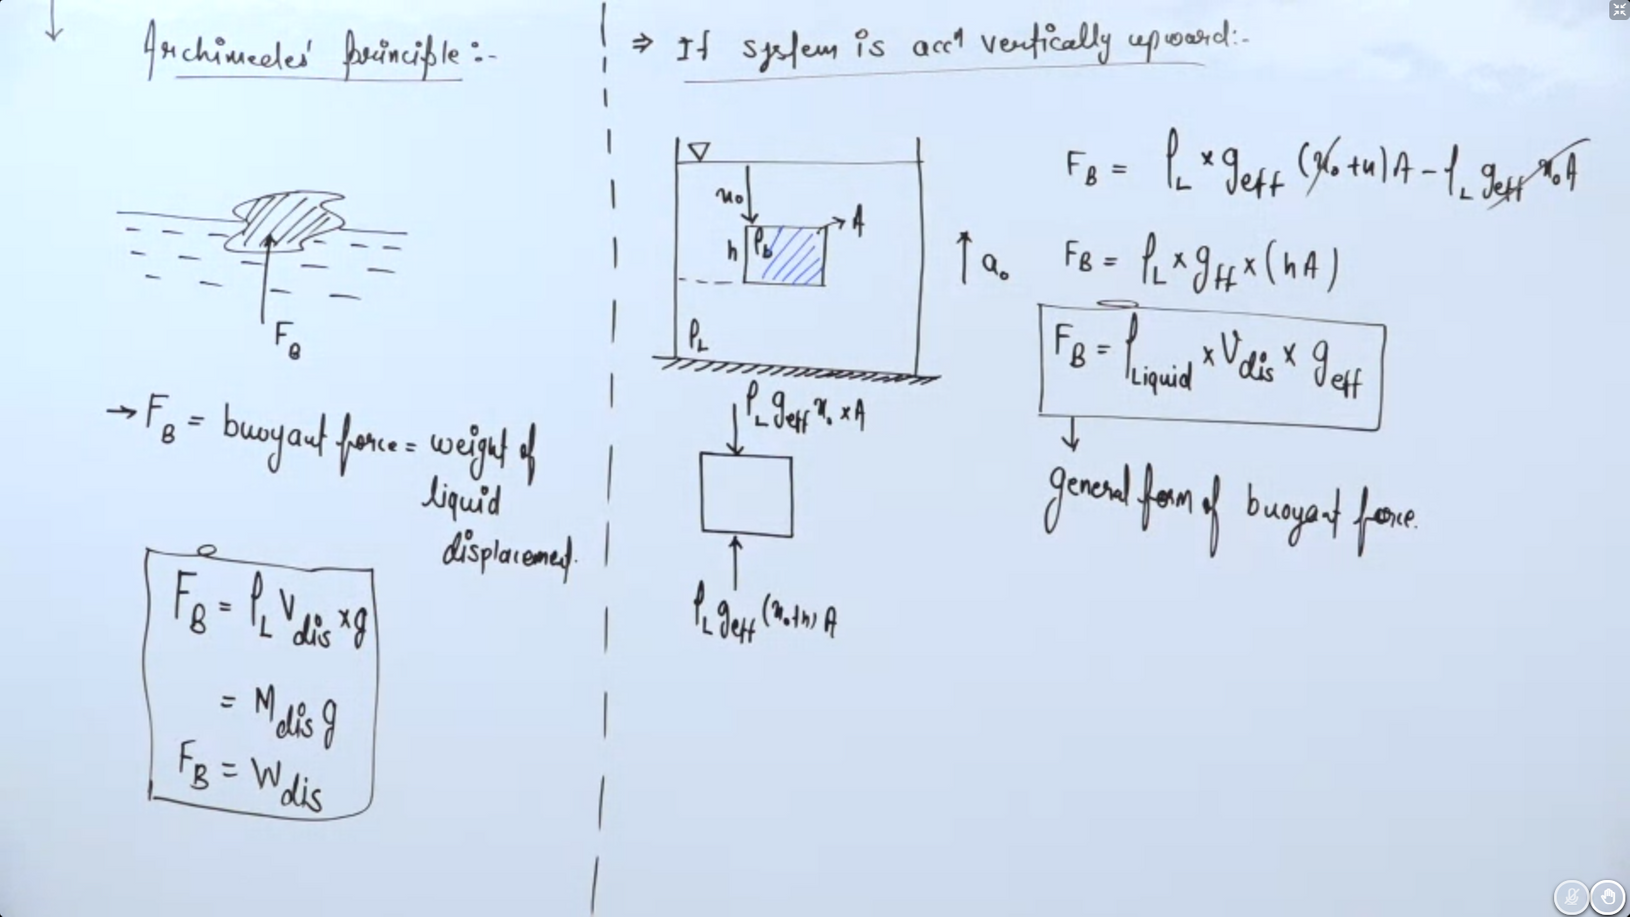 Archimedes' principle :-
F_B
→ F_B = buoyant force = weight of
liquid
displacement.
F_B = ρ_L V_dis × g
= M_dis g
F_B = W_dis
⇒ If system is accⁿ vertically upward:-
x₀
A
h
ρ_B
a₀
ρ_L
ρ_L g_eff x₀ × A
ρ_L g_eff (x₀+h) A
F_B = ρ_L × g_eff (x₀ + h) A - ρ_L g_eff x₀ A
F_B = ρ_L × g_ff × (h A)
F_B = ρ_Liquid × V_dis × g_eff
general form of buoyant force.